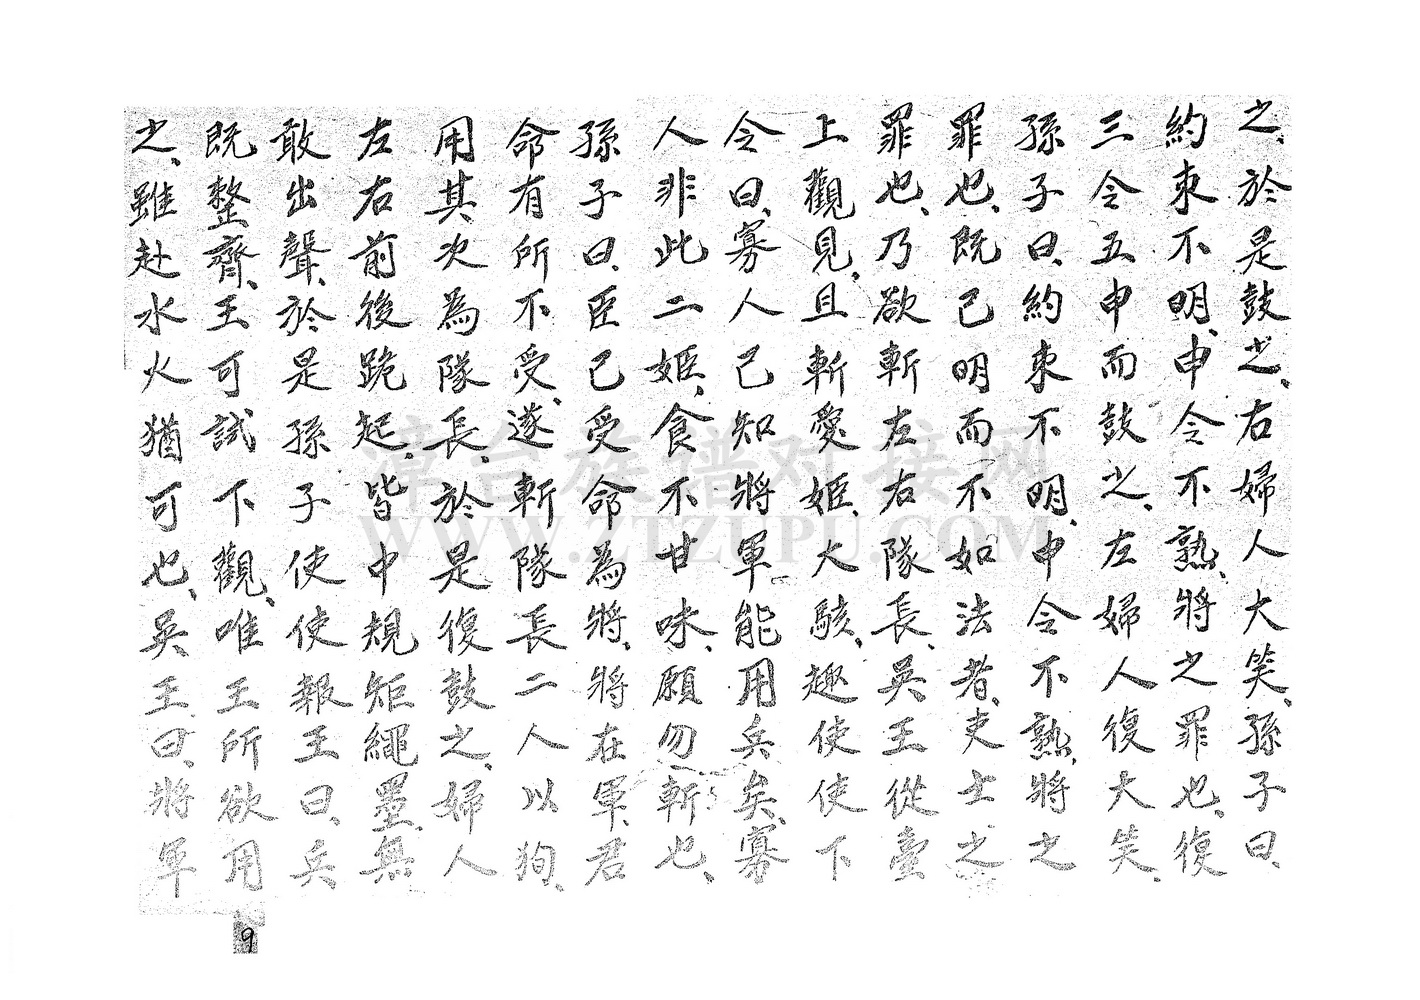 之、於是鼓之、右婦人大笑、孫子曰、
約束不明、申令不熟、將之罪也、復
三令五申而鼓之、左婦人復大笑、
孫子曰、約束不明、申令不熟、將之
罪也、既已明而不如法者、吏士之
罪也、乃欲斬左右隊長、吳王從臺
上觀見、且斬愛姬、大駭、趣使使下
令曰、寡人已知將軍能用兵矣、寡
人非此二姬、食不甘味、願勿斬也、
孫子曰、臣已受命為將、將在軍、君
命有所不受、遂斬隊長二人以狥、
用其次為隊長、於是復鼓之、婦人
左右前後跪起、皆中規矩繩墨、無
敢出聲、於是孫子使使報王曰、兵
既整齊、王可試下觀、唯王所欲用
之、雖赴水火猶可也、吳王曰、將軍
9
漳台族谱对接网
WWW.ZTZUPU.COM